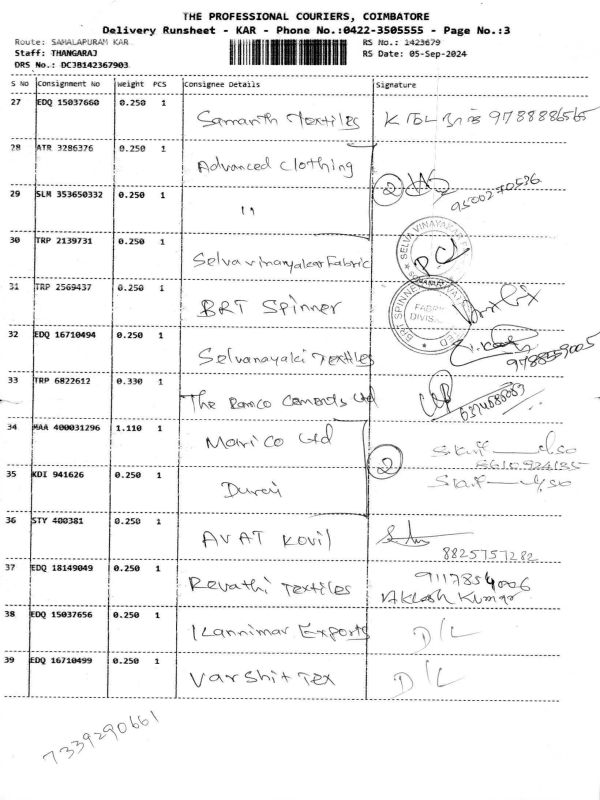 THE PROFESSIONAL COURIERS, COIMBATORE
Delivery Runsheet - KAR - Phone No.:0422-3505555 - Page No.:3
Route: SAMALAPURAM KAR RS No.: 1423679
Staff: THANGARAJ RS Date: 05-Sep-2024
DRS No.: DCJB142367903
S No Consignment No Weight PCS Consignee Details Signature
27 EDQ 15037660 0.250 1 Samanth Textiles 9788886565
28 ATR 3286376 0.250 1 Advanced Clothing 2
9500270536
29 SLM 353650332 0.250 1 11
30 TRP 2139731 0.250 1 Selvavinanyakar Fabric
SELVA VINAYAKAR
31 TRP 2569437 0.250 1 BRT Spinner
BRT SPINNE
FABRIC
DIVIS
32 EDQ 16710494 0.250 1 Selvanayaki Textiles
9788559005
33 TRP 6822612 0.330 1 The Ramco Cements Ltd
34 MAA 400031296 1.110 1 Marico Ltd 2
35 KDI 941626 0.250 1 Durai
36 STY 400381 0.250 1 AVAT Kovil
8825757282
37 EDQ 18149049 0.250 1 Revathi Textiles 9117854006
Aklash Kumar
38 EDQ 15037656 0.250 1 Kannimar Exports D/L
39 EDQ 16710499 0.250 1 Varshit Tex D/L
7339290661